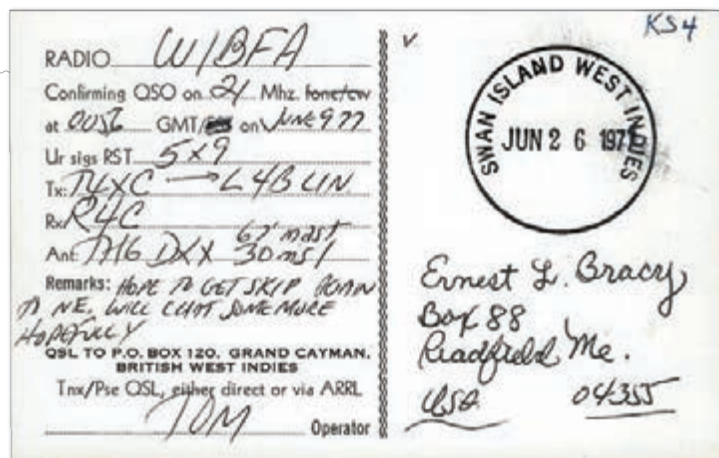 RADIO W1BFA
Confirming QSO on 21 Mhz. fone/cw
at 0056 GMT/ on June 9 77
Ur sigs RST 5x9
Tx: T4XC → L4B LIN
Rx: R4C
67' mast
Ant: TH6 DXX 30 msl
Remarks: HOPE TO GET SKIP DOWN
TO NE. WILL CHAT SOME MORE
HOPEFULLY
QSL TO P.O. BOX 120, GRAND CAYMAN,
BRITISH WEST INDIES
Tnx/Pse QSL, either direct or via ARRL
TOM Operator
v
KS4
SWAN ISLAND WEST INDIES
JUN 26 1977
Ernest L. Bracy
Box 88
Readfield, Me.
USA 04355